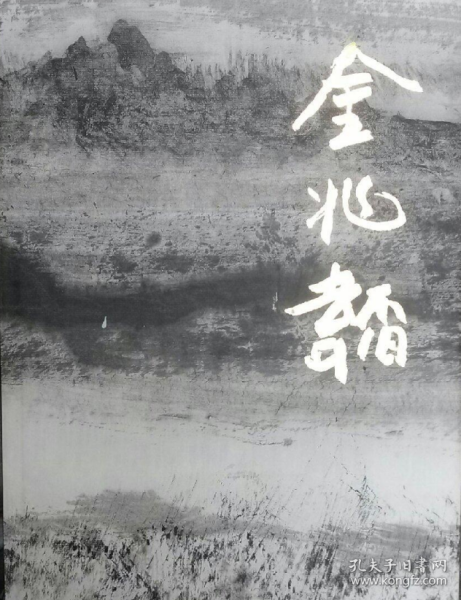 金兆
孔夫子旧书网
www.kongfz.com